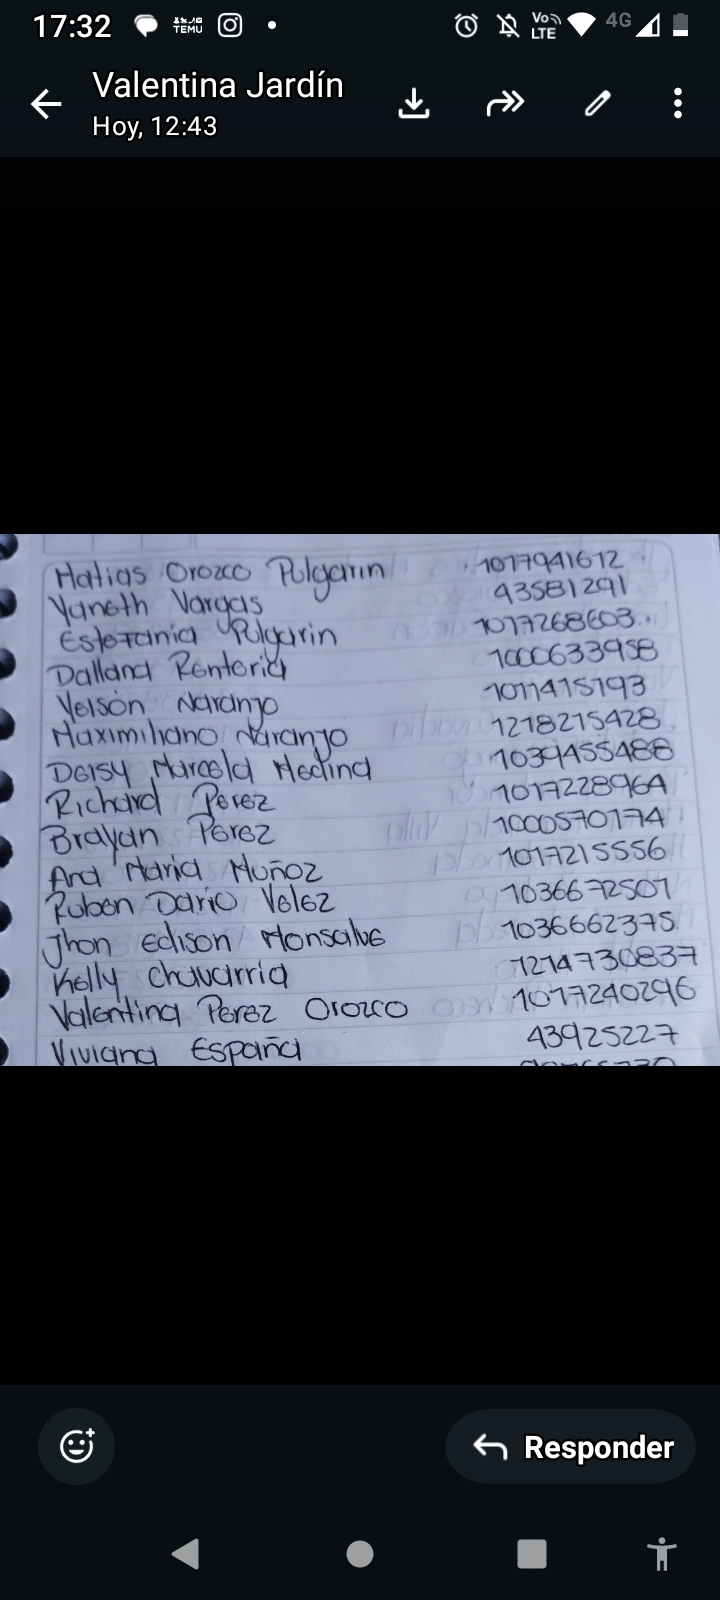 17:32
TEMU
Vo
LTE
4G
Valentina Jardín
Hoy, 12:43
Matias Orozco Pulgarin 1017941612
Yaneth Vargas 43581291
Estefania Pulgarin 1017268603
Dallana Renteria 1000633958
Yeison Naranjo 1011415193
Maximiliano Naranjo 1218215428
Deisy Marcela Medina 1039455488
Richard Perez 1017228964
Brayan Perez 1000570174
Ana Maria Muñoz 1017215556
Ruben Dario Velez 1036672507
Jhon Edison Monsalve 1036662375
Kelly Chavarria 1214730837
Valentina Perez Orozco 1017240296
Viviana España 43925227
Responder